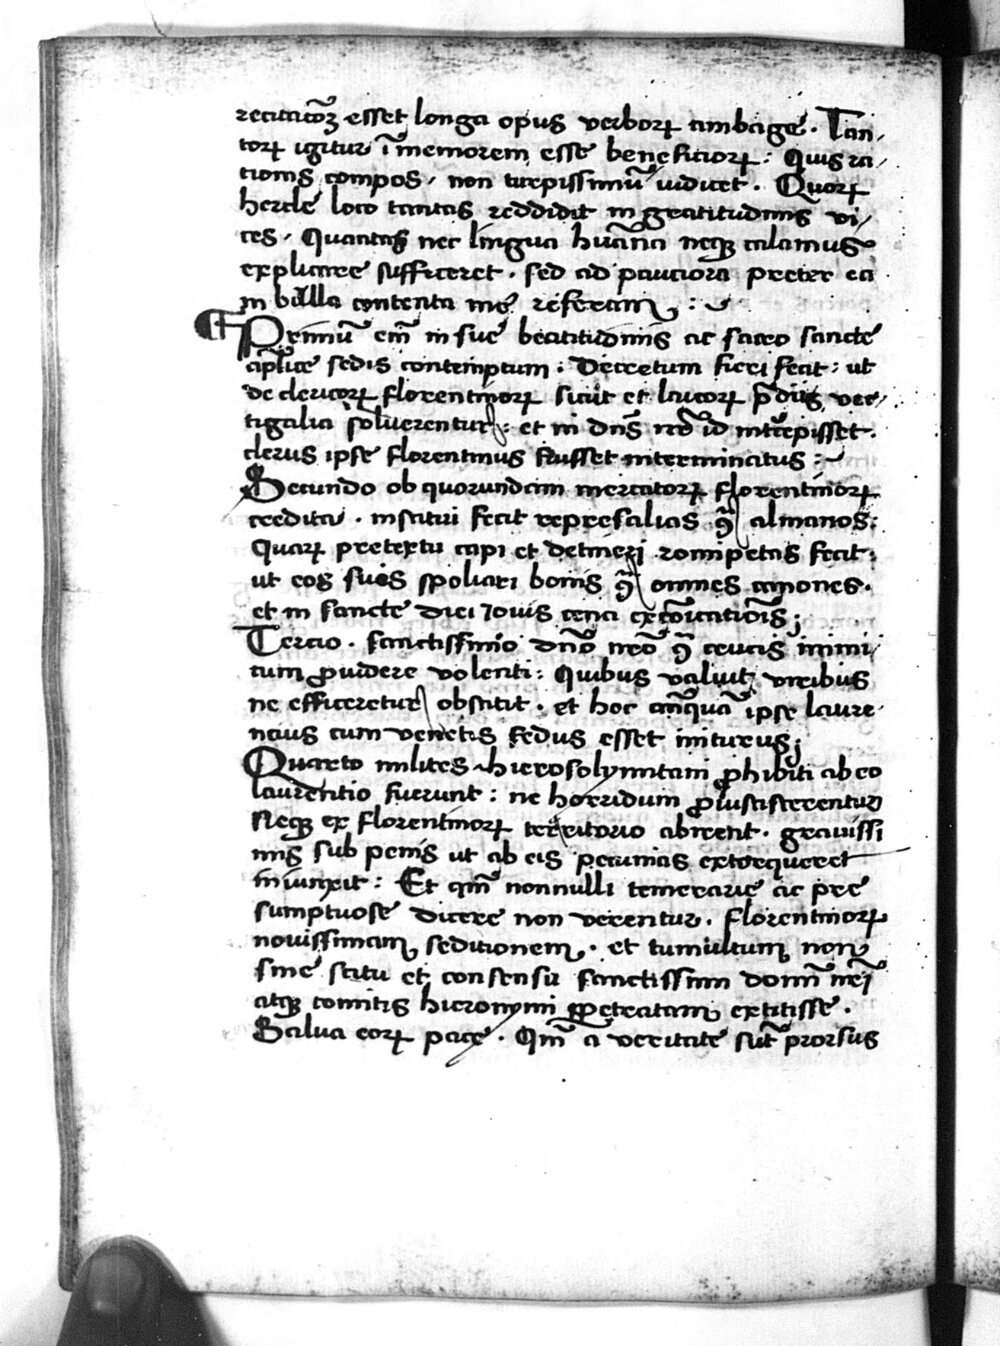 recitatoꝫ esset longa opus verboꝝ ambage. Tan-
toꝝ igitur ī memorem esse beneficioꝝ: Quis ra-
tionis compos, non turpissimū iudicet. Quoꝝ
hercle loco tantas reddidit ingratitudinis vi-
ces. Quantas nec lingua hūana neqꝫ calamus
explicare sufficeret. sed ad pauciora preter ea
in bulla contenta me referam :~
¶ Primū em̄ in sue beatitudinis ac sacro sancte
ap̄lice sedis contemptum: Decretum fieri fecit: ut
de clericoꝝ florentinoꝝ sicut et laicoꝝ p̄diis vec-
tigalia soluerentur: et ni dn̄s nr̄ id intercepisset.
clerus ipse florentinus fuisset interminatus :~
Secundo ob quorundam mercatoꝝ florentinoꝝ
credita. institui fecit represalias ꝯ̄ almanos:
Quaꝝ pretextu capi et detineri romipetas fecit:
ut eos suis spoliari bonis ꝯ̄ omnes canones.
et in sancte diei Iouis cena excōīcatiōis;
Tercio. sanctissimo dn̄o nr̄o ꝯ̄ teucris inimi-
cum ꝓuidere volenti: Quibus valuit viribus
ne efficeretur obstitit. et hoc an̄quā ipse laure-
ncius cum venetis fedus esset initurus;
Quarto milites hierosolymitani ꝓhibiti ab eo
laurentio fuerunt: ne horridum
Neqꝫ ex florentinoꝝ territorio abirent. grauissi
mis sub penis ut ab eis pecunias extorqueret
iniunxit: Et qm̄ nonnulli temerarie ac pre
sumptuose dicere non verentur. florentinoꝝ
nouissimam seditionem. et tumultum non
sine scitu et consensu sanctissimi domī nr̄i
atqꝫ comitis hieronymi ꝑpetratam extitisse.
Salua eoꝝ pace. Qm̄ a veritate sūt prorsus